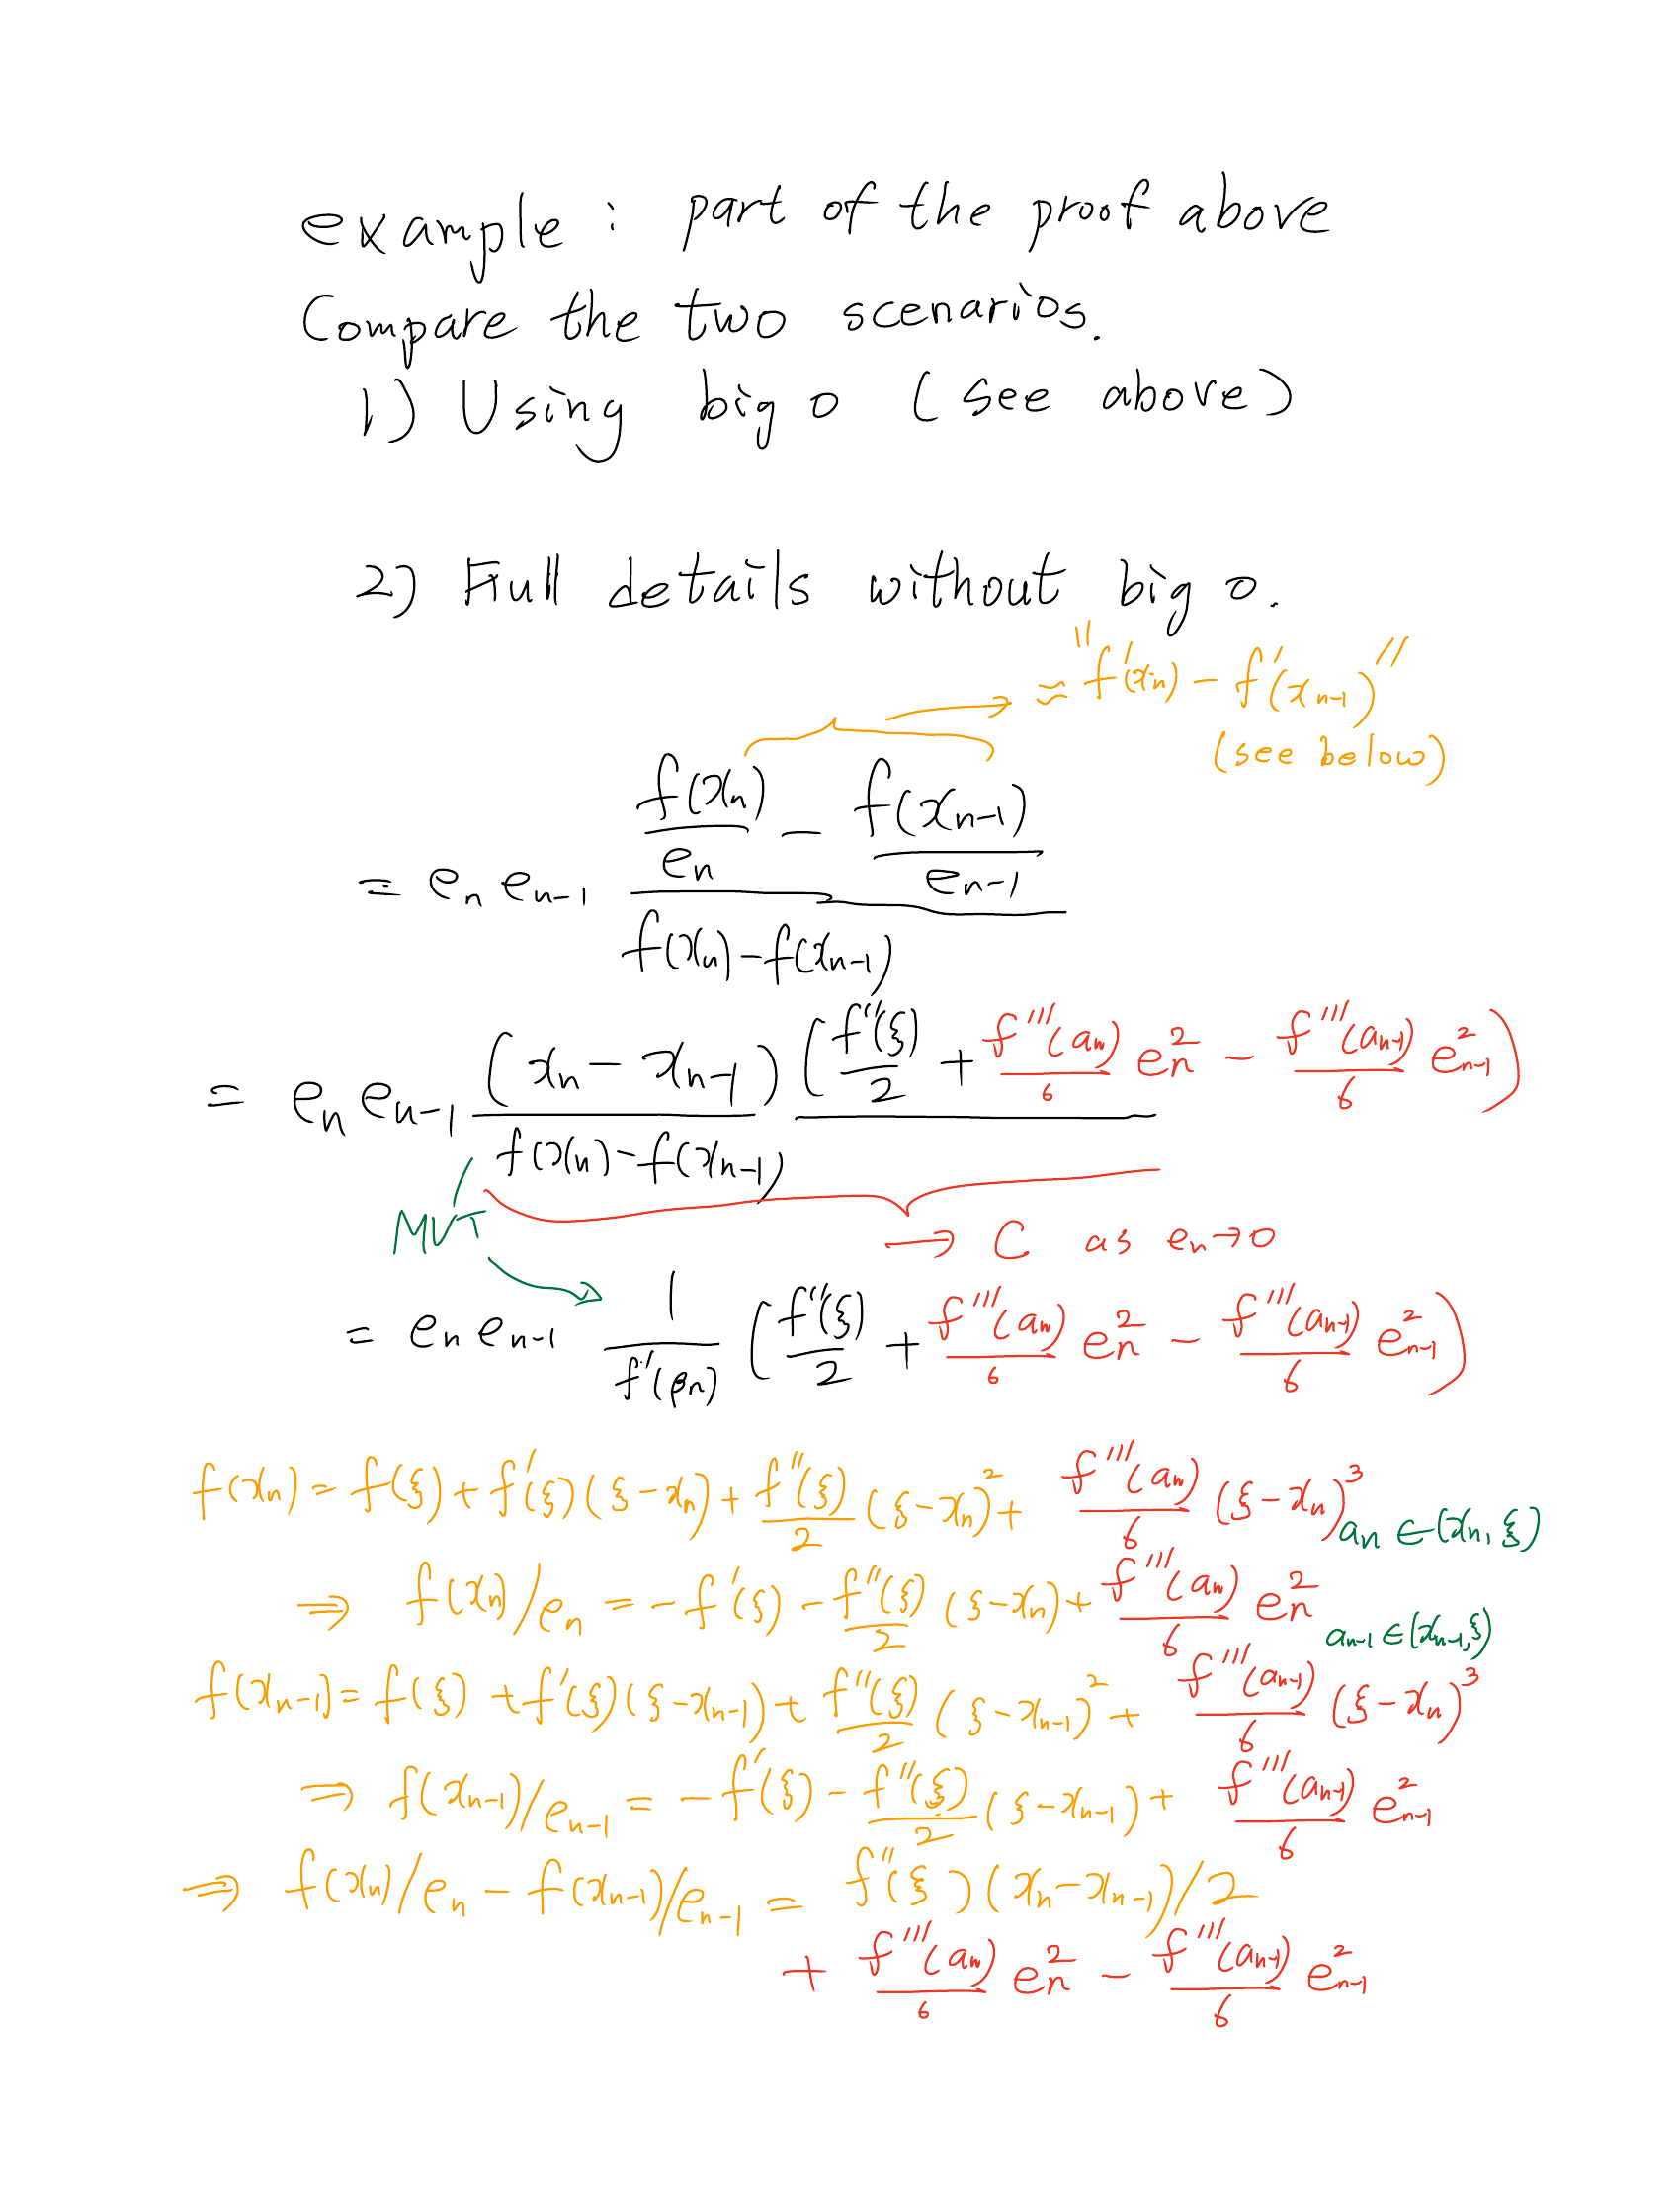 example : part of the proof above
Compare the two scenarios.
1) Using big o (see above)
2) Full details without big o.
≈ "f'(xₙ) − f'(xₙ₋₁)"
(see below)
= eₙ eₙ₋₁ (f(xₙ)/eₙ − f(xₙ₋₁)/eₙ₋₁) / (f(xₙ) − f(xₙ₋₁))
= eₙ eₙ₋₁ (xₙ − xₙ₋₁)/(f(xₙ) − f(xₙ₋₁)) (f''(ξ)/2 + f'''(aₙ)/6 eₙ² − f'''(aₙ₋₁)/6 eₙ₋₁²)
MVT
→ C as eₙ → 0
= eₙ eₙ₋₁ 1/f'(βₙ) (f''(ξ)/2 + f'''(aₙ)/6 eₙ² − f'''(aₙ₋₁)/6 eₙ₋₁²)
f(xₙ) = f(ξ) + f'(ξ)(ξ − xₙ) + f''(ξ)/2 (ξ − xₙ)² + f'''(aₙ)/6 (ξ − xₙ)³ aₙ ∈ (xₙ, ξ)
⇒ f(xₙ)/eₙ = −f'(ξ) − f''(ξ)/2 (ξ − xₙ) + f'''(aₙ)/6 eₙ²
aₙ₋₁ ∈ (xₙ₋₁, ξ)
f(xₙ₋₁) = f(ξ) + f'(ξ)(ξ − xₙ₋₁) + f''(ξ)/2 (ξ − xₙ₋₁)² + f'''(aₙ₋₁)/6 (ξ − xₙ)³
⇒ f(xₙ₋₁)/eₙ₋₁ = −f'(ξ) − f''(ξ)/2 (ξ − xₙ₋₁) + f'''(aₙ₋₁)/6 eₙ₋₁²
⇒ f(xₙ)/eₙ − f(xₙ₋₁)/eₙ₋₁ = f''(ξ)(xₙ − xₙ₋₁)/2
+ f'''(aₙ)/6 eₙ² − f'''(aₙ₋₁)/6 eₙ₋₁²